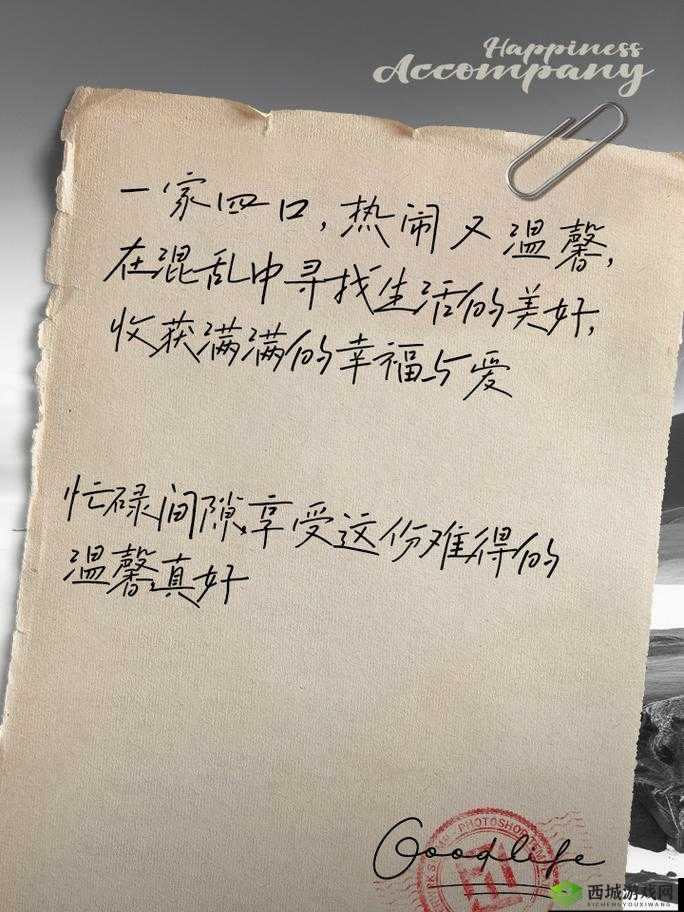 Happiness
Accompany
一家四口，热闹又温馨，
在混乱中寻找生活的美好，
收获满满的幸福与爱
忙碌间隙，享受这份难得的
温馨真好
PHOTOSHOP
Goodlife
西城游戏网
XICHENGYOUXIWANG